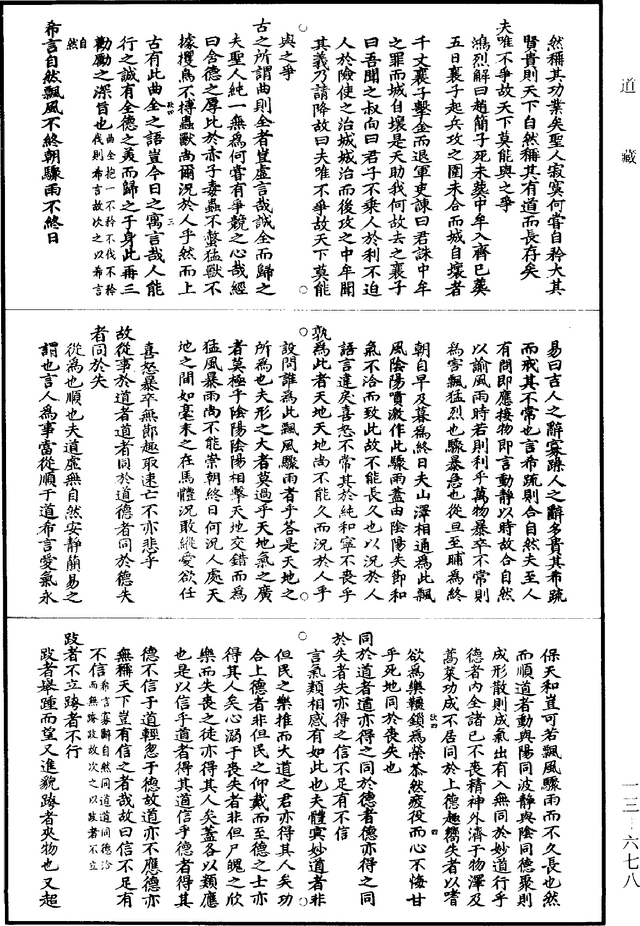 道藏
然稱其功業矣聖人寂寞何嘗自矜大其
賢貴則天下自然稱其有道而長存矣
夫唯不爭故天下莫能與之爭
鴻烈解曰趙簡子死未葬中牟入齊已葬
五日襄子起兵攻之圍未合而城自壞者
千丈襄子擊金而退軍吏諫曰君誅中牟
之罪而城自壞是天助我何故去之襄子
曰吾聞之叔向曰君子不乘人於利不迫
人於險使之治城城治而後攻之中牟聞
其義乃請降故曰夫唯不爭故天下莫能
與之爭
古之所謂曲則全者豈虛言哉誠全而歸之
夫聖人純一無為何嘗有爭競之心哉經
曰含德之厚比於赤子毒蟲不螫猛獸不
據攫鳥不搏蟲獸尚爾況於人乎然而上
古有此曲全之語豈今日之寓言哉人能
行之誠有全德之美而歸之于身此再三
勸勵之深旨也曲全抱一不矜不伐不矜
伐則希言故次之以希言
自然
希言自然飄風不終朝驟雨不終日
易曰吉人之辭寡躁人之辭多貴其希疏
而戒其不常也言希疏則合自然夫至人
有問即應接物即言動靜以時故合自然
以諭風雨時若則利乎萬物暴卒不常則
為害飄猛烈也驟暴急也從旦至晡為終
朝自早及暮為終日夫山澤相通為此飄
風陰陽噴激作此驟雨蓋由陰陽失節和
氣不洽而致此故不能長久也以況於人
語言違戾喜怒不常其於純和寧不喪乎
孰為此者天地天地尚不能久而況於人乎
設問誰為此飄風驟雨者乎答是天地之
所為也夫形之大者莫過乎天地氣之廣
者莫極乎陰陽陰陽相擊天地交錯而為
猛風暴雨尚不能崇朝終日何況人處天
地之間如毫末之在馬體況敢縱愛欲任
喜怒暴卒無節趣取速亡不亦悲乎
故從事於道者道者同於道德者同於德失
者同於失
從為也順也夫道虛無自然安靜簡易之
謂也言人為事當從順于道希言愛氣永
保天和豈可若飄風驟雨而不久長也然
而順道者動與陽同波靜與陰同德聚則
成形散則成氣出有入無同於妙道行乎
德者內全諸己不喪精神外濟于物澤及
萬葉功成不居同於上德趣嚮失者以嗜
欲為樂韁鎖為榮苶然疲役而心不悔甘
乎死地同於喪失也
同於道者道亦得之同於德者德亦得之同
於失者失亦得之信不足有不信
言氣類相感有如此也夫體冥妙道者非
但民之樂推而大道之君亦得其人矣功
合上德者非但民之仰戴而至德之士亦
得其人矣心溺于喪失者非但尸魄之欣
樂而失喪之徒亦得其人矣蓋各以類應
也是以信乎道者得其道信乎德者得其
德不信于道輕忽于德故道亦不應德亦
無稱天下豈有信之者哉故曰信不足有
不信希言寡辭自然同道道同德洽
而無跨跂故次之以跂者不立
跂者不立跨者不行
跂者舉踵而望又進貌跨者夾物也又超
一三—六七八